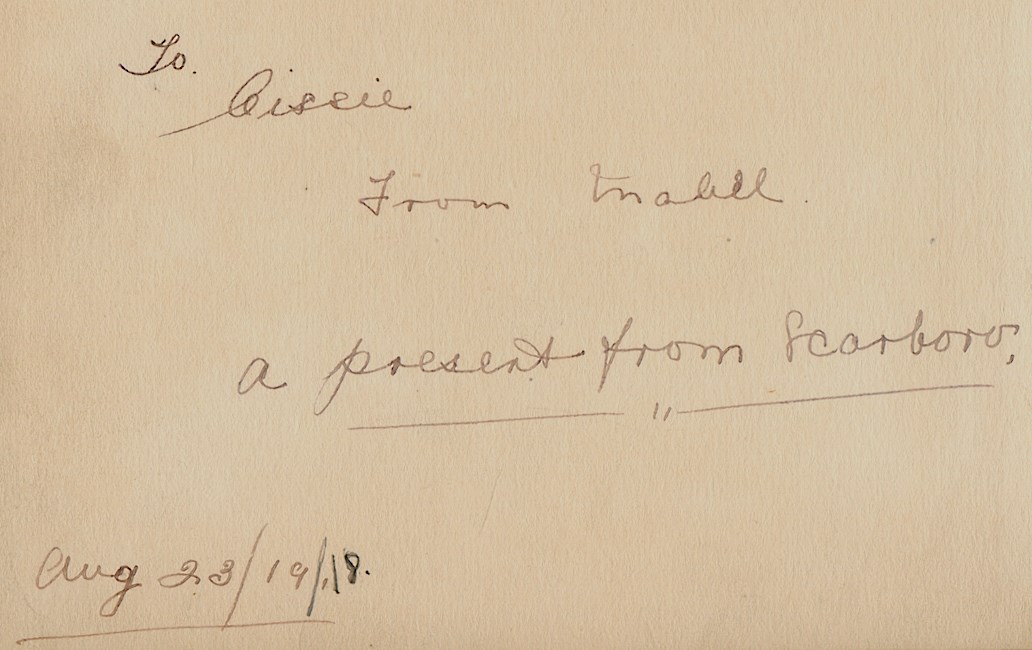 To.
Cissie
From Mabell.
a present from Scarboro,
"
Aug 23/19/18.